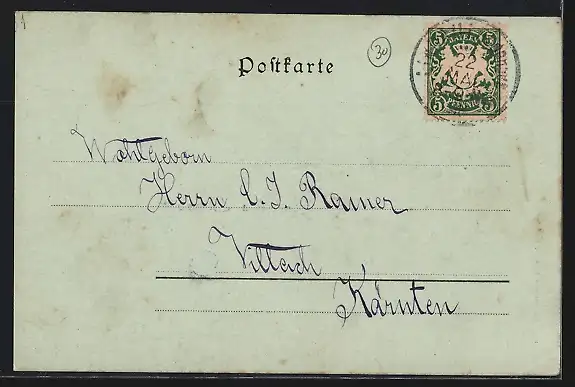 30
Postkarte
BAYERN
5 5
22
MAI
5 5
PFENNIG
Wohlgeborn
Herrn C. J. Rainer
Villach
Kärnten